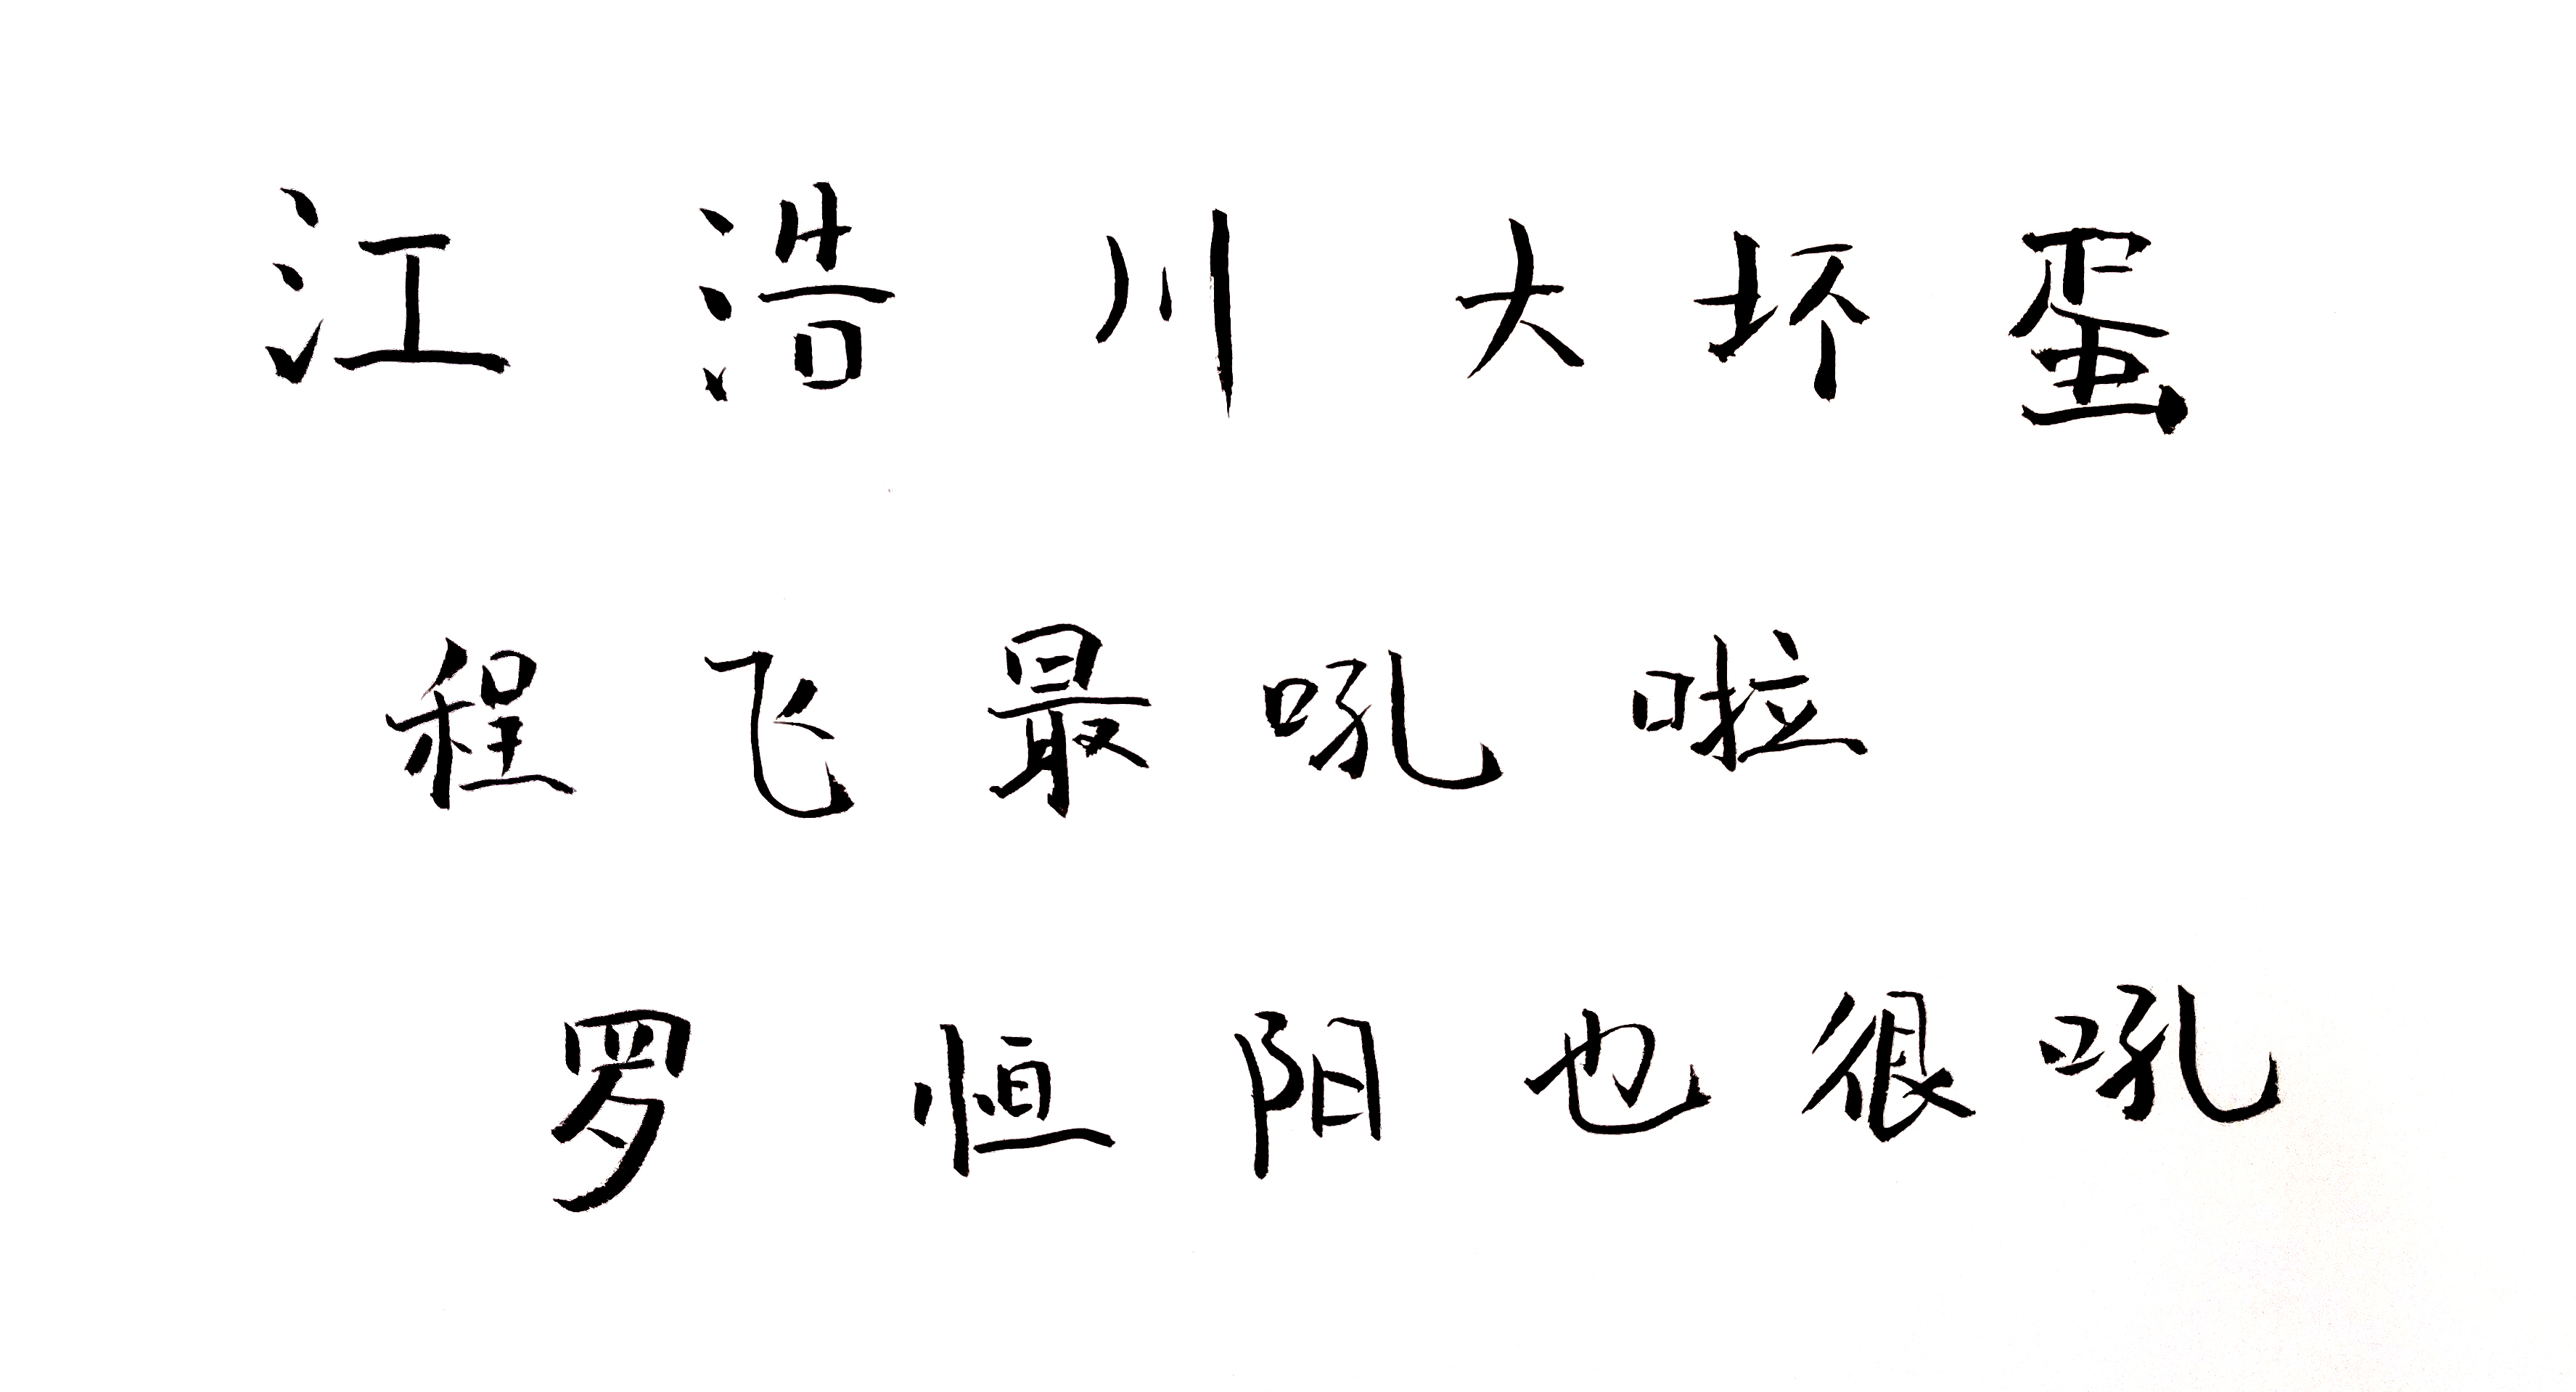 江浩川大坏蛋
程飞最吼啦
罗恒阳也很吼